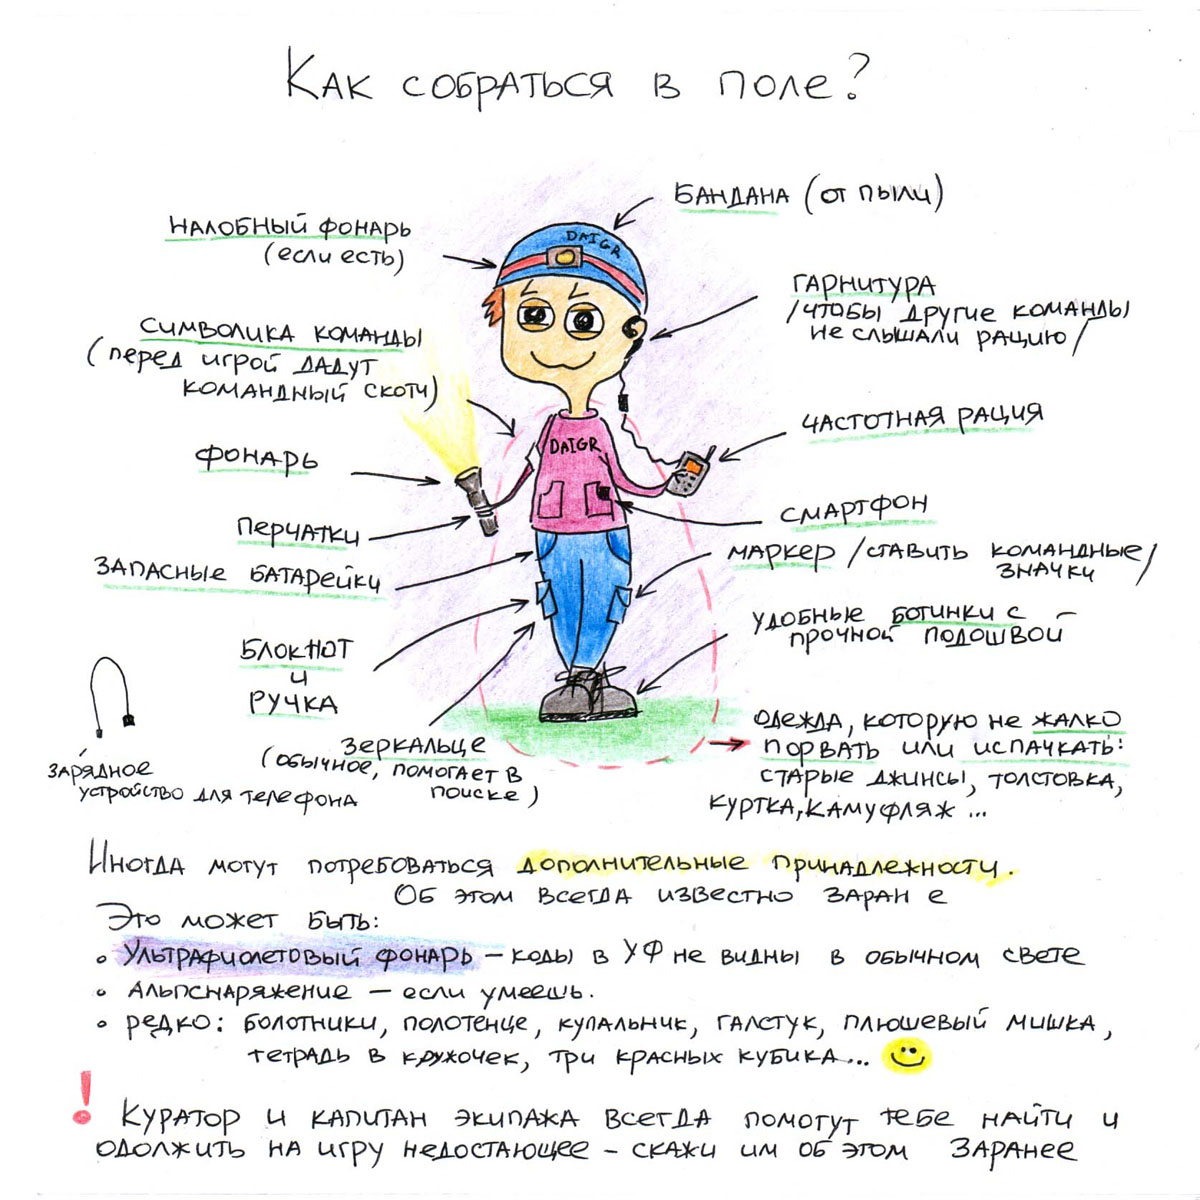 Как собраться в поле?
Бандана (от пыли)
Налобный фонарь
(если есть)
DAIGR
Гарнитура
/чтобы другие команды
не слышали рацию/
Символика команды
(перед игрой дадут
командный скотч)
Частотная рация
DAIGR
Фонарь
Смартфон
Перчатки
Маркер /ставить командные/
значки
Запасные батарейки
Удобные ботинки с
прочной подошвой
Блокнот
и
ручка
Одежда, которую не жалко
порвать или испачкать:
старые джинсы, толстовка,
куртка, камуфляж ...
Зеркальце
(обычное, помогает в
поиске)
Зарядное
устройство для телефона
Иногда могут потребоваться дополнительные принадлежности.
Об этом всегда известно заран е
Это может быть:
• Ультрафиолетовый фонарь – коды в УФ не видны в обычном свете
• Альпснаряжение – если умеешь.
• редко: болотники, полотенце, купальник, галстук, плюшевый мишка,
тетрадь в кружочек, три красных кубика...
! Куратор и капитан экипажа всегда помогут тебе найти и
одолжить на игру недостающее – скажи им об этом заранее